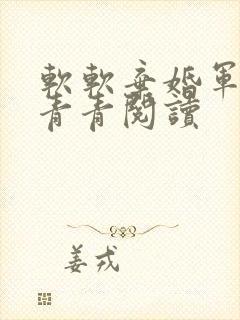 軟軟棄婚軍
青青閱讀
姜戎